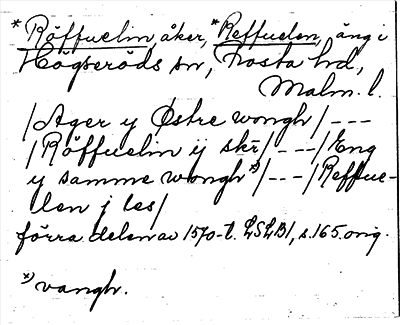 *Röffuelin, åker, *Reffuelen, äng i
Högseröds sn, Frosta hd,
Malm. l.
/Ager y Østre wongh/---
/Röffuelin ij skr/---/Eng
y samme wongh*)/---/Reffue-
len j les/
förra delen av 1570-t. LSLB1, s.165.orig.
*) vangh.